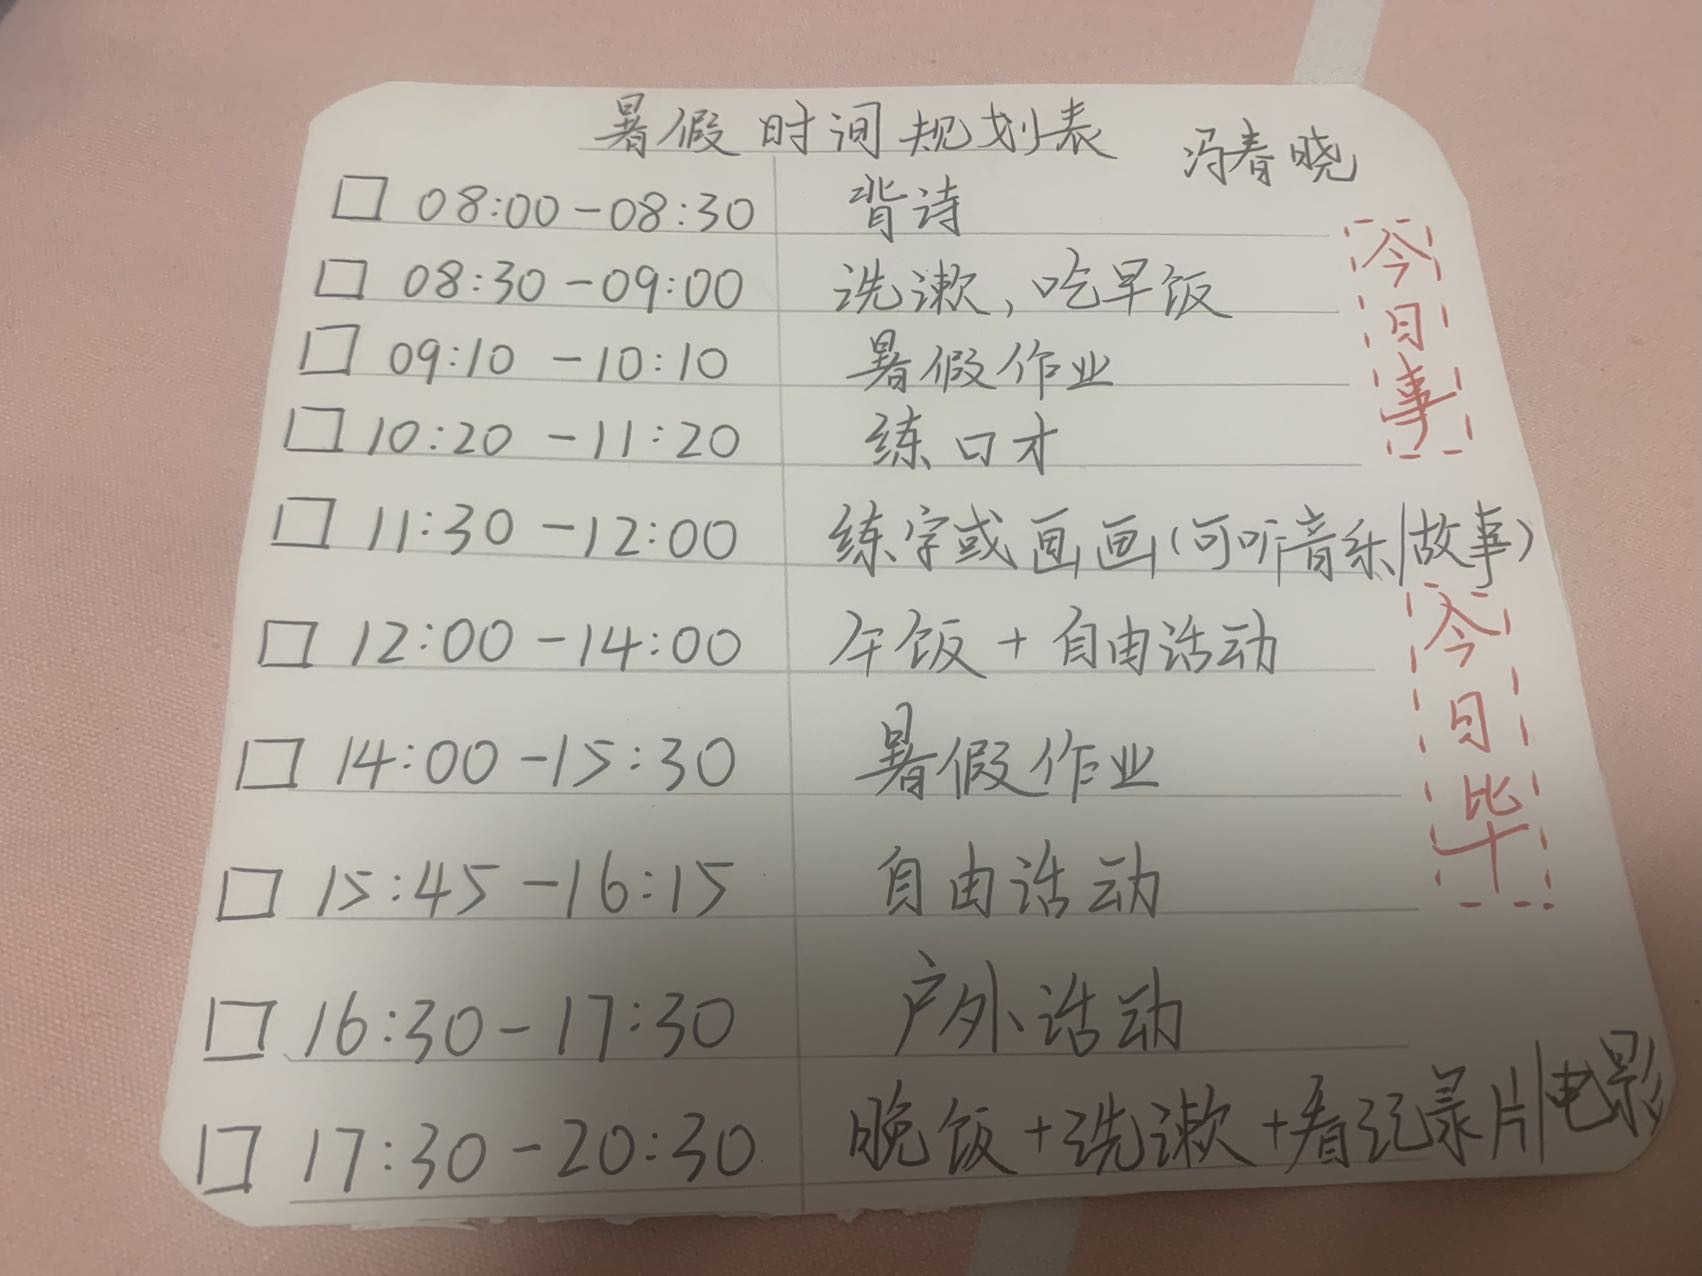 暑假时间规划表 冯春晓
□ 08:00-08:30 背诗
□ 08:30-09:00 洗漱,吃早饭
□ 09:10-10:10 暑假作业
□ 10:20-11:20 练口才
□ 11:30-12:00 练字或画画(可听音乐/故事)
□ 12:00-14:00 午饭+自由活动
□ 14:00-15:30 暑假作业
□ 15:45-16:15 自由活动
□ 16:30-17:30 户外活动
□ 17:30-20:30 晚饭+洗漱+看纪录片/电影
今日事
今日毕